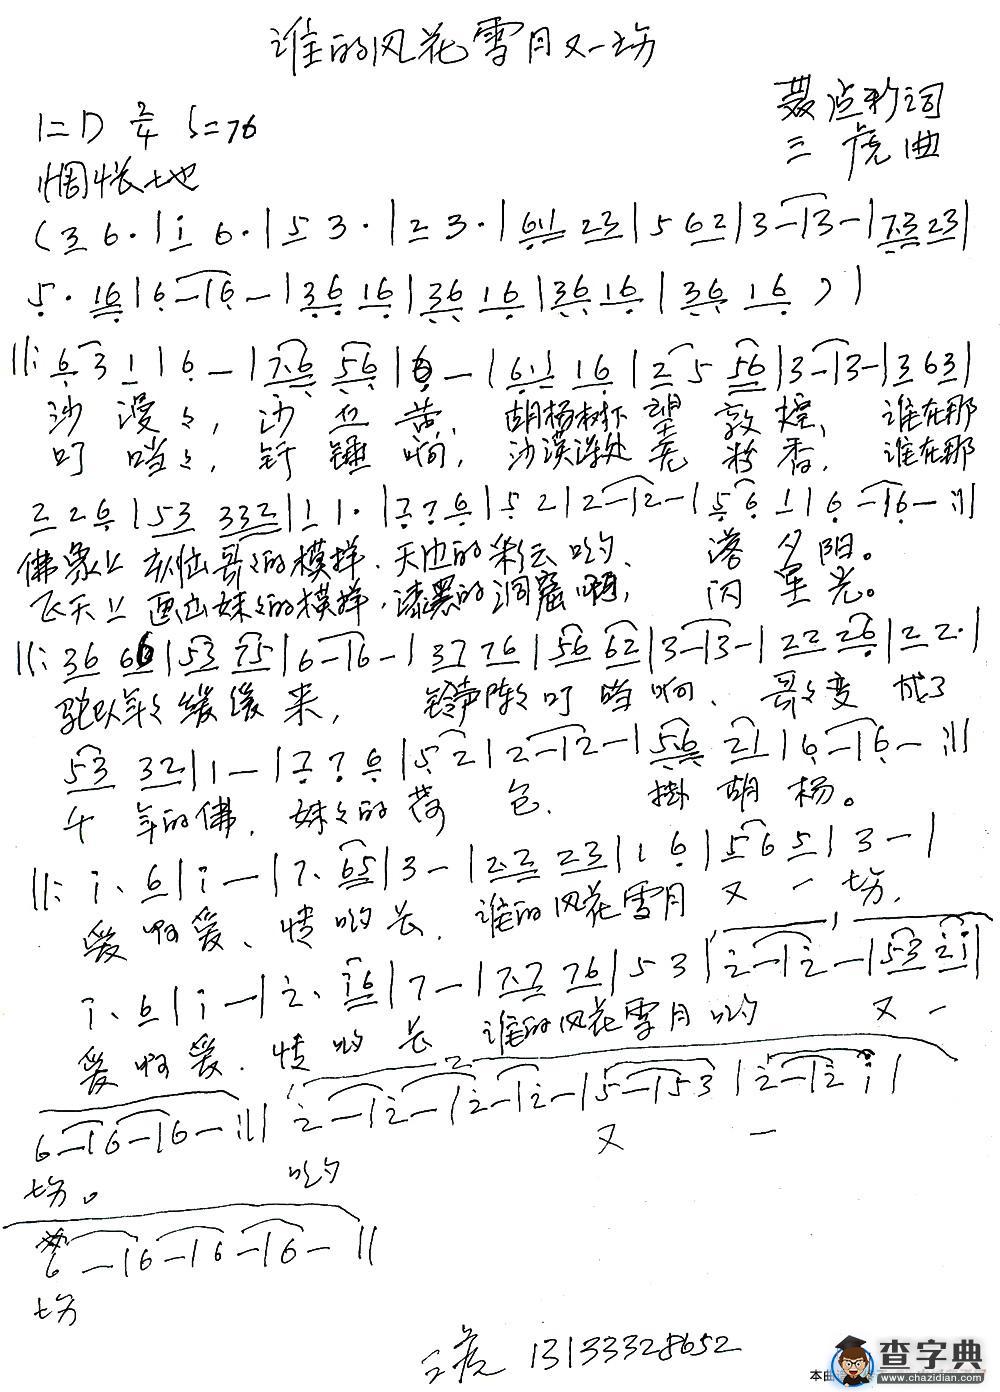 谁的风花雪月又一场
1=D 2/4 ♩=76
聂 珍词
三 虎 曲
惆怅地
(3 6·|i 6·|5 3·|2 3·|61 23|5 62|3—|3—|7·3 23|
5· 16|6—|6—|36 16|36 16|36 16|36 16)|
||:6 3 1|6—|7·6 56|6—|6·1 16|2 5 56|3—|3—|3 63|
沙 漫々, 沙 苦, 胡杨树下 望 敦 煌, 谁在那
叮 当々, 钎 锤 啊, 沙漠深处 粉 香, 谁在那
2 26|53 332|1 1·|7 76|5 2|2—|2—|5 6 1|6—|6—:||
佛象上 哥々的模样, 天边的彩云哟, 落 夕 阳。
飞天上 画出妹々的模样, 漆黑的洞窟啊, 闪 星 光。
||:36 66|53 75|6—|6—|37 76|56 62|3—|3—|22 26|2 2·|
驼队年々 缓缓 来, 铃声阵々 叮 当 啊, 哥々变 成了
53 32|1—|7 76|5 2|2—|2—|5·6 21|6—|6—:||
千 年的佛, 妹々的荷 包, 掛 胡 杨。
||:i· 6|i—|7· 65|3—|2·2 23|1 6|5 6 5|3—|
爱 啊 爱, 情 哟 长, 谁的风花雪月 又 一 场,
i· 6|i—|2· i6|7—|7·7 76|5 3|2—|2—|53 2i|
爱 啊 爱, 情 哟 长 谁的风花雪月 哟 又 一
6—|6—|6—:|| 2—|2—|2—|2—|5—|5 3|2—|2 i|
场。 哟 又 一
6—|6—|6—|6—||
场
三虎 13133328652
查字典
www.chazidian.com
本曲